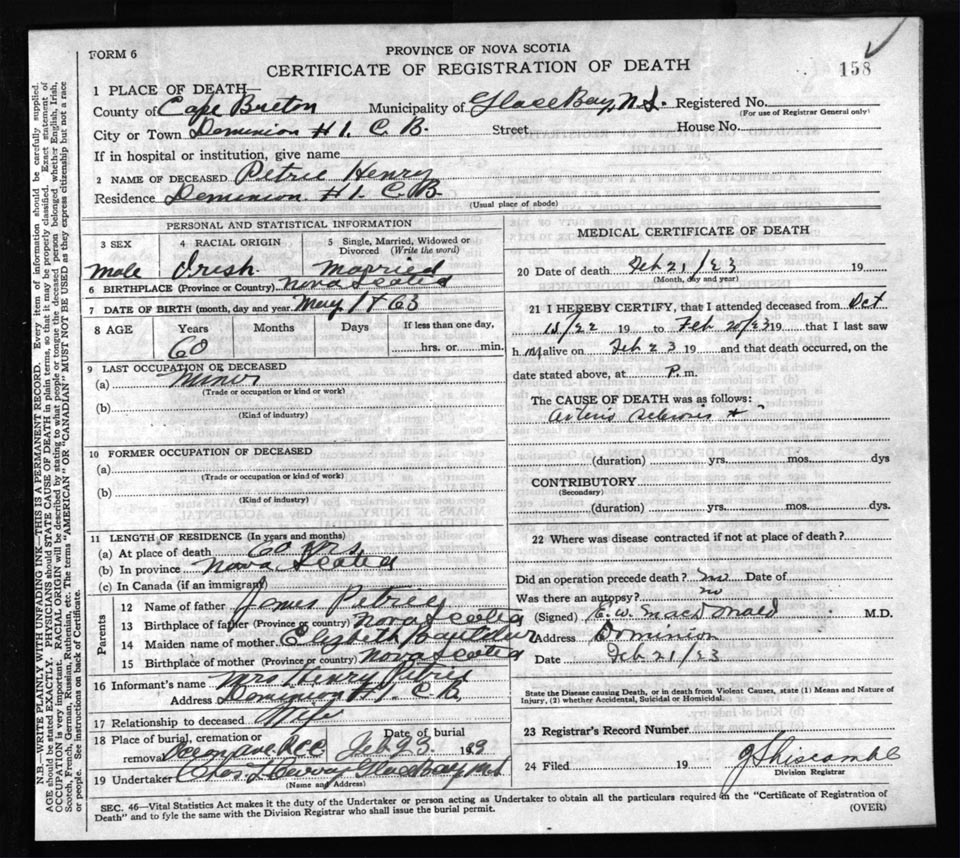 PROVINCE OF NOVA SCOTIA
FORM 6
CERTIFICATE OF REGISTRATION OF DEATH
158
1 PLACE OF DEATH—
County of Cape Breton Municipality of Glace Bay, N.S. Registered No.
(For use of Registrar General only)
City or Town Dominion # 1. C. B. Street House No.
If in hospital or institution, give name
2 NAME OF DECEASED Petrie Henry
Residence Dominion # 1. C. B.
(Usual place of abode)
PERSONAL AND STATISTICAL INFORMATION
3 SEX 4 RACIAL ORIGIN 5 Single, Married, Widowed or Divorced (Write the word)
Male Irish. Married
6 BIRTHPLACE (Province or Country) Nova Scotia
7 DATE OF BIRTH (month, day and year) May 1st 63
8 AGE Years Months Days If less than one day,
60 hrs. or min.
9 LAST OCCUPATION OF DECEASED
(a) Miner
(Trade or occupation or kind or work)
(b)
(Kind of industry)
10 FORMER OCCUPATION OF DECEASED
(a)
(Trade or occupation or kind or work)
(b)
(Kind of industry)
11 LENGTH OF RESIDENCE (In years and months)
(a) At place of death 60 Yrs
(b) In province Nova Scotia
(c) In Canada (if an immigrant)
Parents
12 Name of father James Petrie
13 Birthplace of father (Province or country) Nova Scotia
14 Maiden name of mother Elizbeth
15 Birthplace of mother (Province or country) Nova Scotia
16 Informant's name Mrs Henry Petrie
Address Dominion # 1. C. B.
17 Relationship to deceased Wife
18 Place of burial, cremation or removal Ocean Ave. Date of burial Feb 23 19
19 Undertaker Glace Bay N.S.
(Name and Address)
MEDICAL CERTIFICATE OF DEATH
20 Date of death Feb 21/23 19
(Month, day and year)
21 I HEREBY CERTIFY, that I attended deceased from Oct
15/22 19 to Feb 20/23 19 that I last saw
h m alive on Feb 23 19 and that death occurred, on the
date stated above, at P. m.
The CAUSE OF DEATH was as follows:
Arterio Sclerosis
(duration) yrs. mos. dys
CONTRIBUTORY
(Secondary)
(duration) yrs. mos. dys.
22 Where was disease contracted if not at place of death?
Did an operation precede death? no Date of
Was there an autopsy? no
(Signed) E. W. MacDonald M.D.
Address Dominion
Date Feb 21/23
State the Disease causing Death, or in death from Violent Causes, state (1) Means and Nature of
Injury, (2) whether Accidental, Suicidal or Homicidal.
23 Registrar's Record Number
24 Filed 19
Division Registrar
SEC. 46—Vital Statistics Act makes it the duty of the Undertaker or person acting as Undertaker to obtain all the particulars required in the "Certificate of Registration of
Death" and to fyle the same with the Division Registrar who shall issue the burial permit. (OVER)
N.B.—WRITE PLAINLY WITH UNFADING INK—THIS IS A PERMANENT RECORD. Every item of information should be carefully supplied.
AGE should be stated EXACTLY. PHYSICIANS should STATE CAUSE OF DEATH in plain terms, so that it may be properly classified. Exact statement of
OCCUPATION is very important. RACIAL ORIGIN will be described by stating to what people or tongue the deceased person belonged whether English, Irish,
Scotch, French, German, Russian, Ruthenian, etc. The terms "AMERICAN" OR "CANADIAN" MUST NOT BE USED as they express citizenship but not a race
or people. See instructions on back of Certificate.